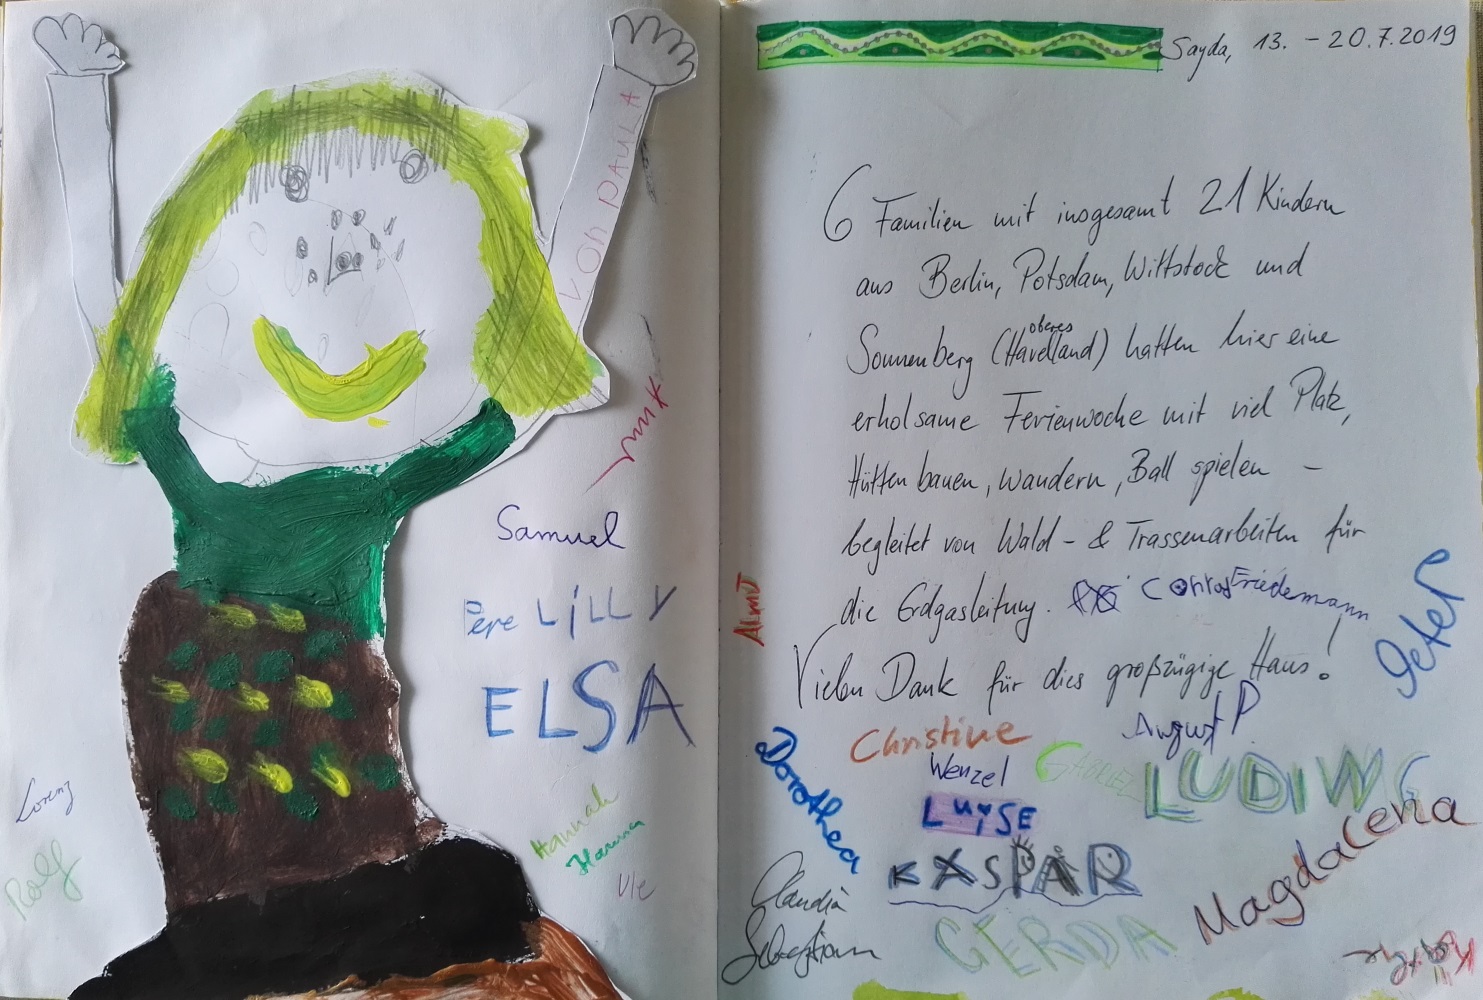 VON PAULA
Samuel
LiLLY
ELSA
Lorenz
Rolf
Hannah
Hanna
Ule
Sayda, 13. - 20.7.2019
6 Familien mit insgesamt 21 Kindern
aus Berlin, Potsdam, Wittstock und
oberes
Sonnenberg (Havelland) hatten hier eine
erholsame Ferienwoche mit viel Platz,
Hütten bauen, Wandern, Ball spielen -
begleitet von Wald- & Trassenarbeiten für
die Erdgasleitung.
Conrad
Friedemann
Vielen Dank für dies großzügige Haus!
Peter
Almut
Dorothea
Christine
August P
Wenzel
GABRIEL
LUDIWG
LUiSE
KASPAR
Magdalena
Claudia
Sebastian
GERDA